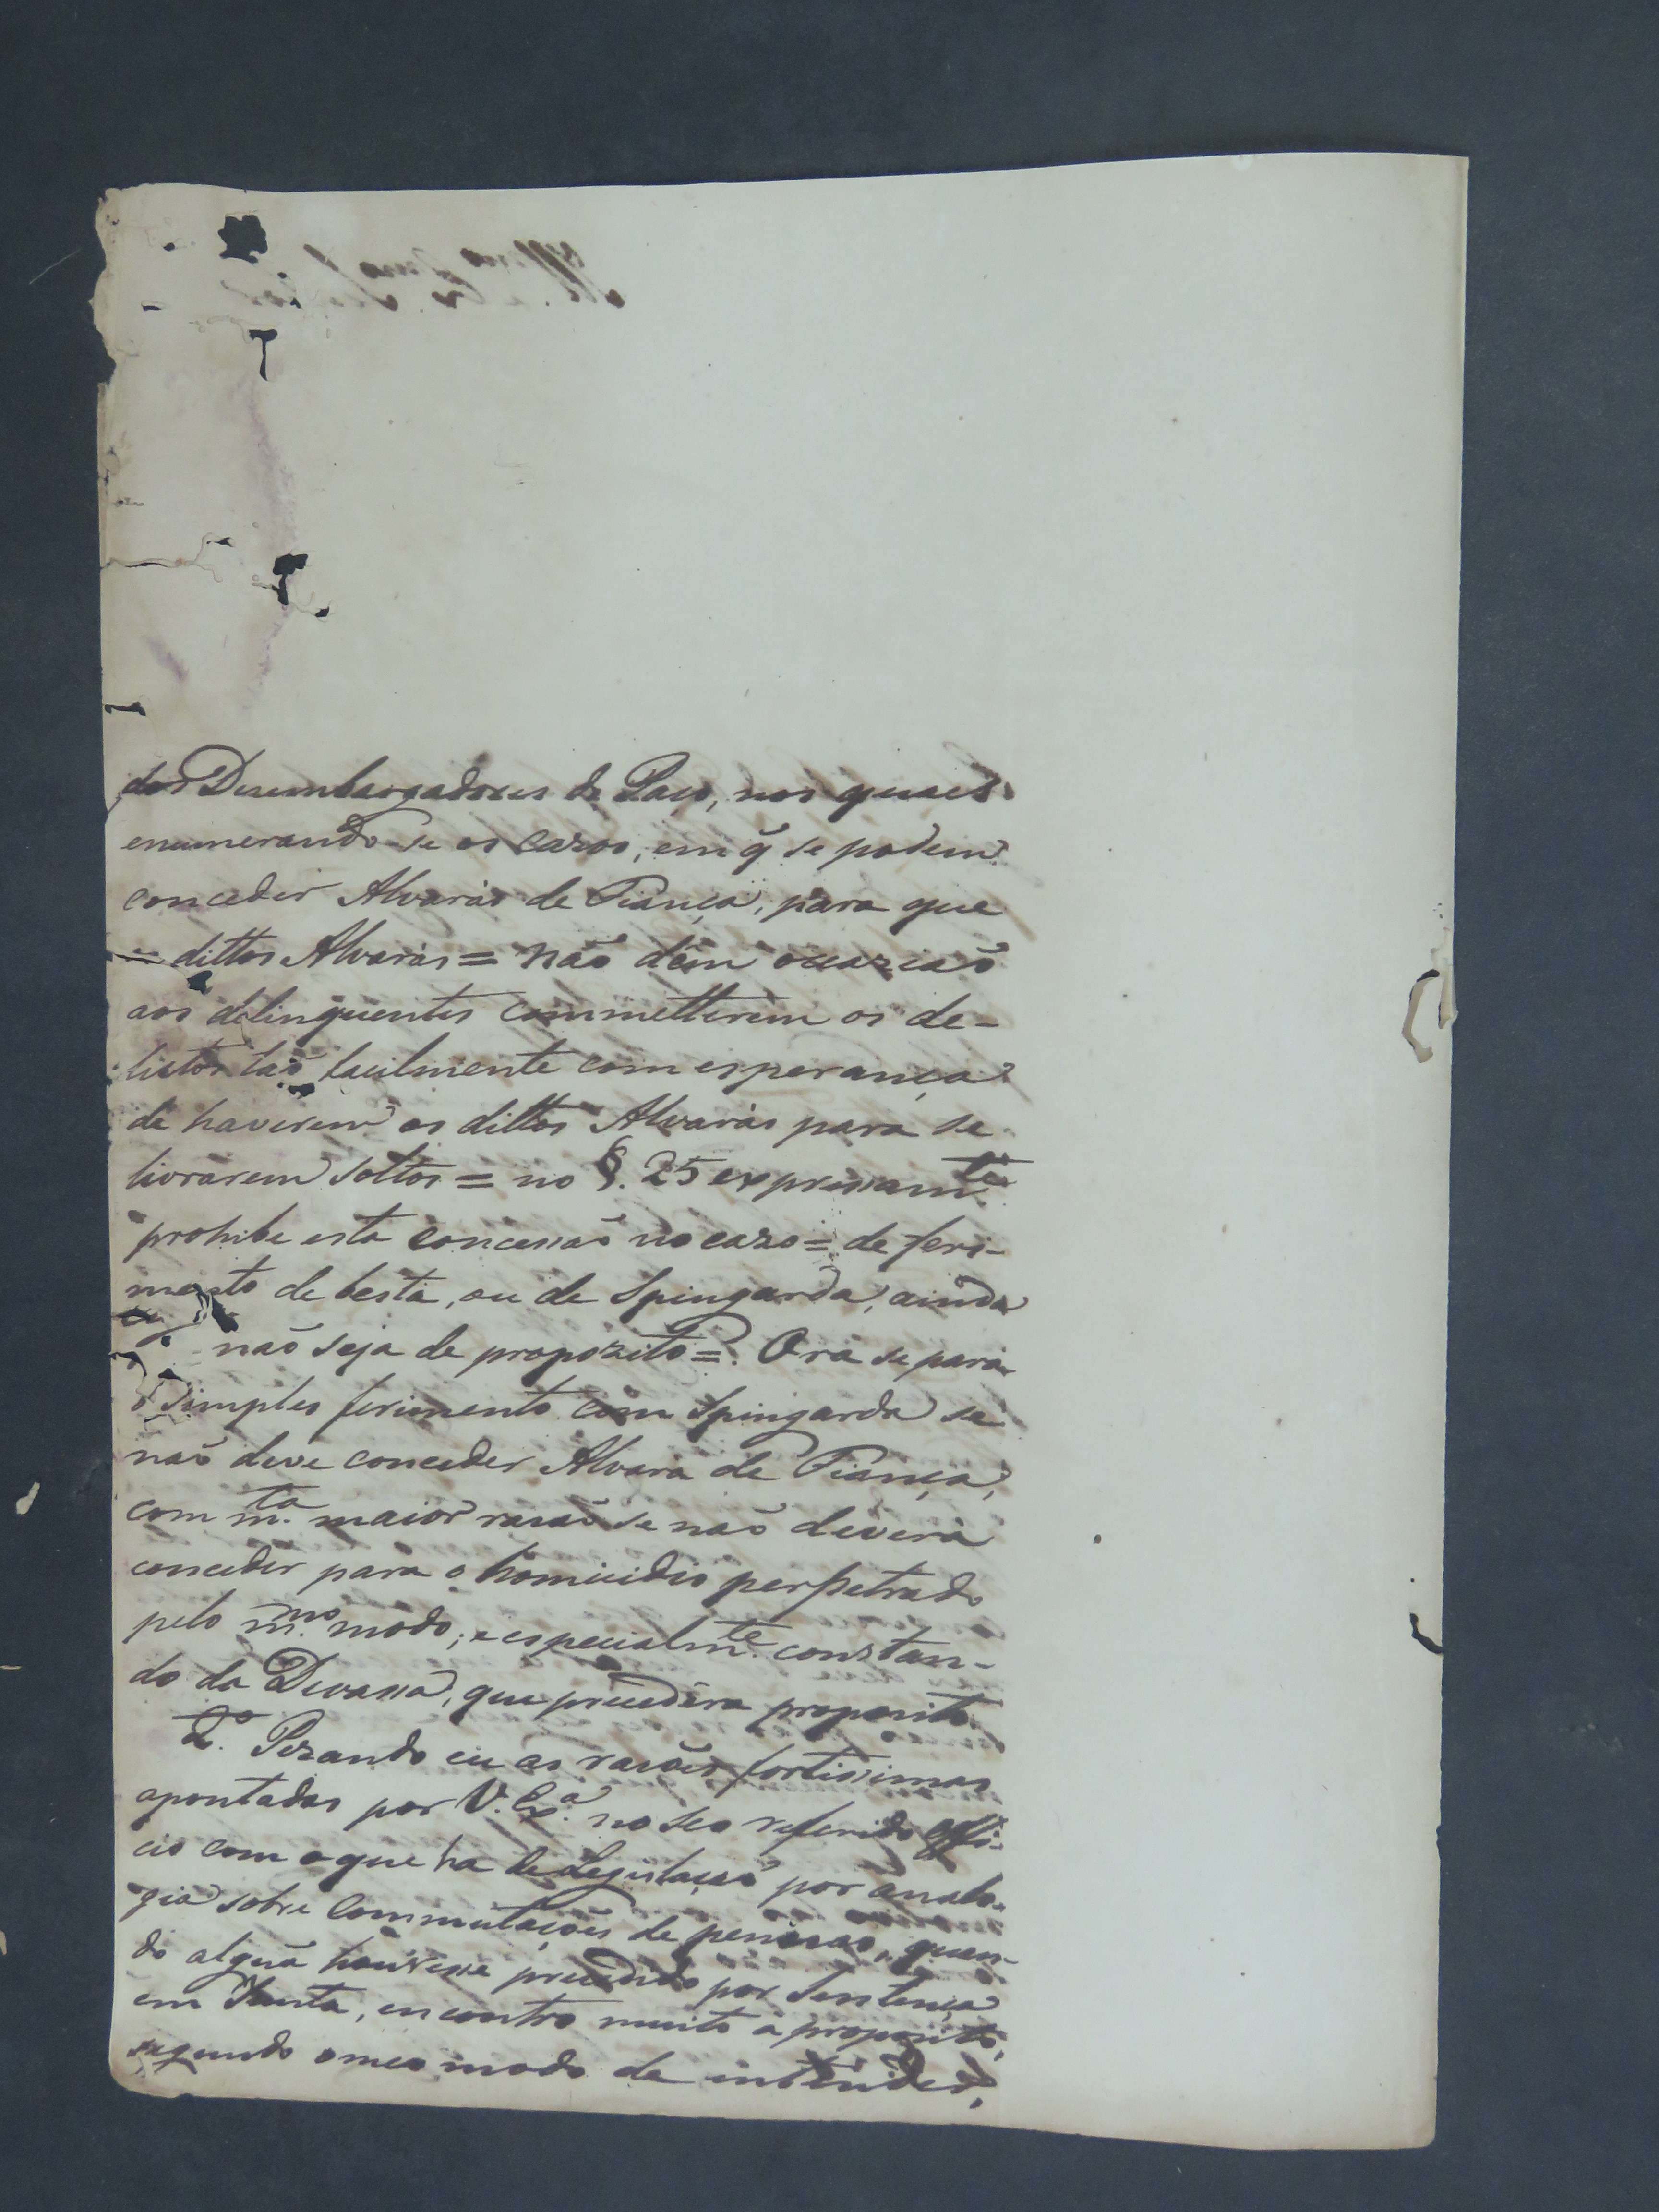 dos Desembargadores do Paço, nos quaes
enumerando-se os cazos, em q̃ se podem
conceder Alvarás de Fiança, para que
= dittos Alvarás = não dêm occazião
aos delinquentes commetterem os de-
lictos tão facilmente com esperança
de haverem os dittos Alvarás para se
livrarem soltos = no §. 25 expressam.te
prohibe esta concessão no cazo = de feri-
mento de besta, ou de Spingarda, ainda
q̃ não seja de propozito =. Ora se para
o simples ferimento com Spingarda se
não deve conceder Alvará de Fiança,
com m.ta maior rasão se não deverá
conceder para o homicidio perpetrado
pelo m.mo modo; e especialm.te constan-
do da Devassa, que precedêra proposito.
2.º Pezando eu as rasões fortissimas
apontadas por V. Ex.a no seo referido Offi-
cio com o que ha de Legislação por analo-
gia sobre Commutações de penas, quan-
do algũa houvesse precedido por Sentença
em Junta, encontro muito a proposito,
segundo o meo modo de intender,